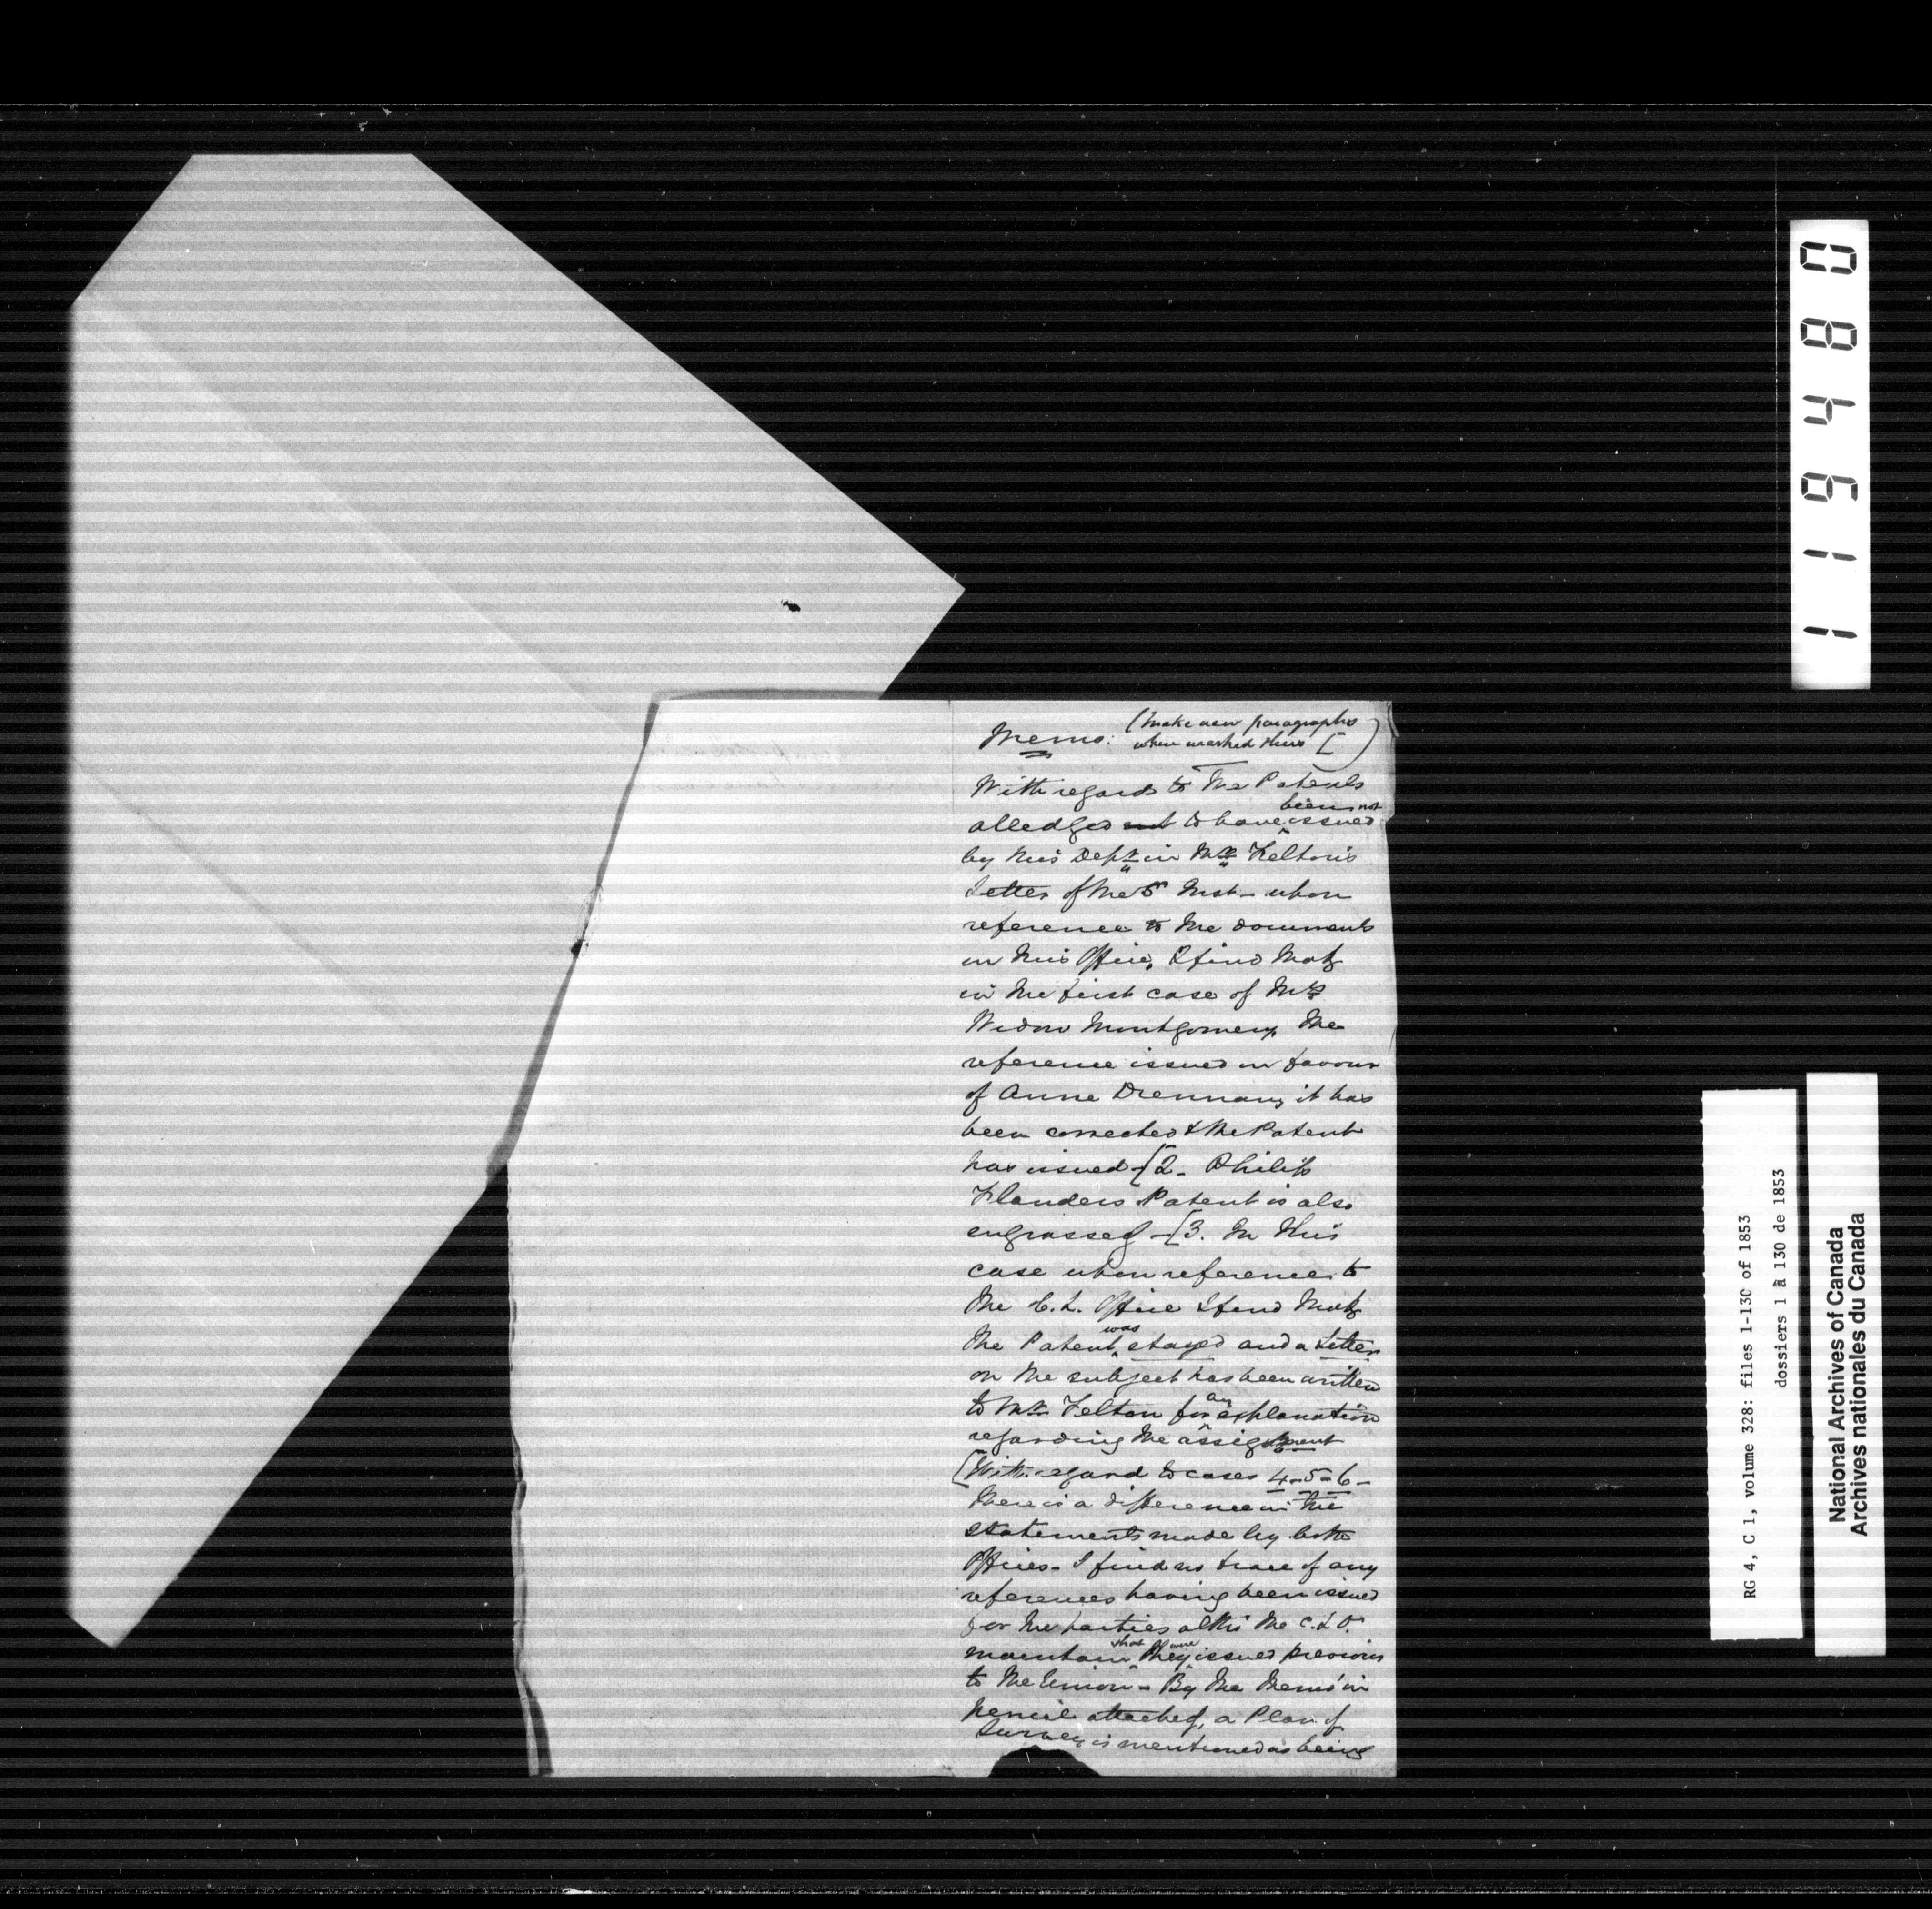 Memo: (make new paragraphs
when marked thus [ )
With regard to The Patents
alledged not to have been not issued
by this Dept in Mr Felton's
Letter of the 5th Inst - upon
reference to the documents
in this Office, I find that
in the first case of Mrs
Widow Montgomery the
reference issued in favour
of Anne Drennan, it has
been corrected & the Patent
has issued - [2 - Philip
Flanders Patent is also
engrossed - [3. In this
case upon reference to
the C. L. Office I find that
the Patent was stayed and a Letter
on the subject has been written
to Mr Felton for an explanation
regarding the assignment
[With regard to cases 4-5-6-
there is a difference in the
statements made by both
Offices - I find no trace of any
references having been issued
for the parties altho' the C. L O.
maintain that they were issued previous
to the Union - By the Memo in
pencil attached, a Plan of
Survey is mentioned as being
084911
RG 4, C 1, volume 328: files 1-130 of 1853
dossiers 1 à 130 de 1853
National Archives of Canada
Archives nationales du Canada